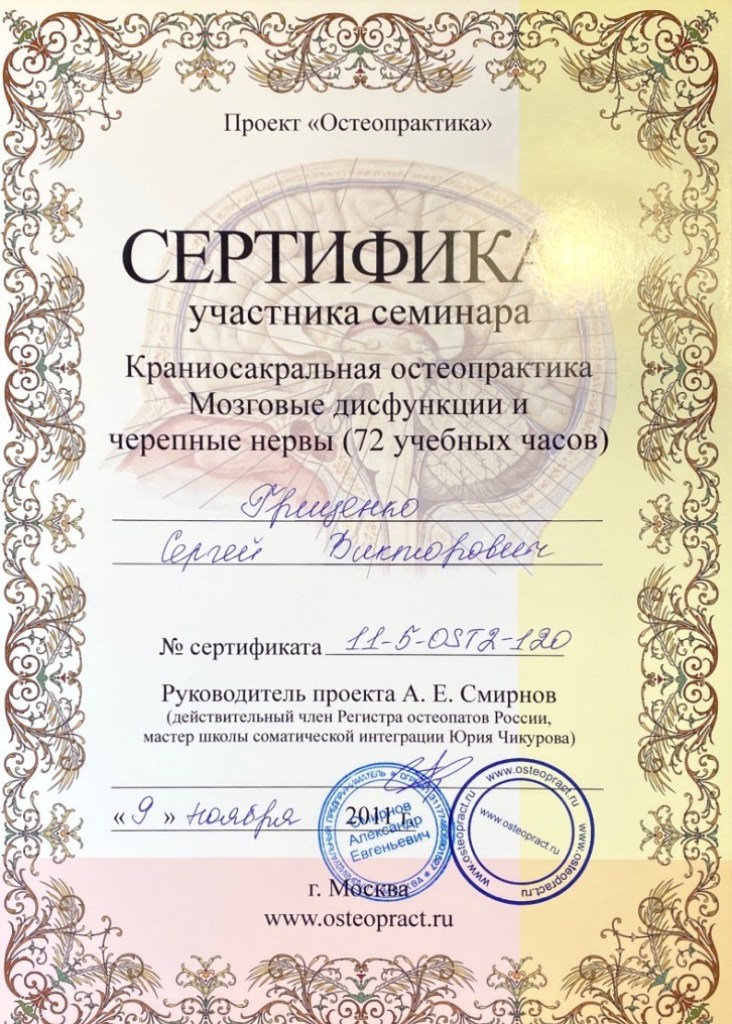 Проект «Остеопрактика»
СЕРТИФИКА
участника семинара
Краниосакральная остеопрактика
Мозговые дисфункции и
черепные нервы (72 учебных часов)
Грищенко
Сергей Викторович
№ сертификата 11-5-OST2-120
Руководитель проекта А. Е. Смирнов
(действительный член Регистра остеопатов России,
мастер школы соматической интеграции Юрия Чикурова)
«9» ноября 2011 г.
Смирнов
Александр
Евгеньевич
www.osteopract.ru
www.osteopract.ru
www.osteopract.ru
www.osteopract.ru
г. Москва
www.osteopract.ru